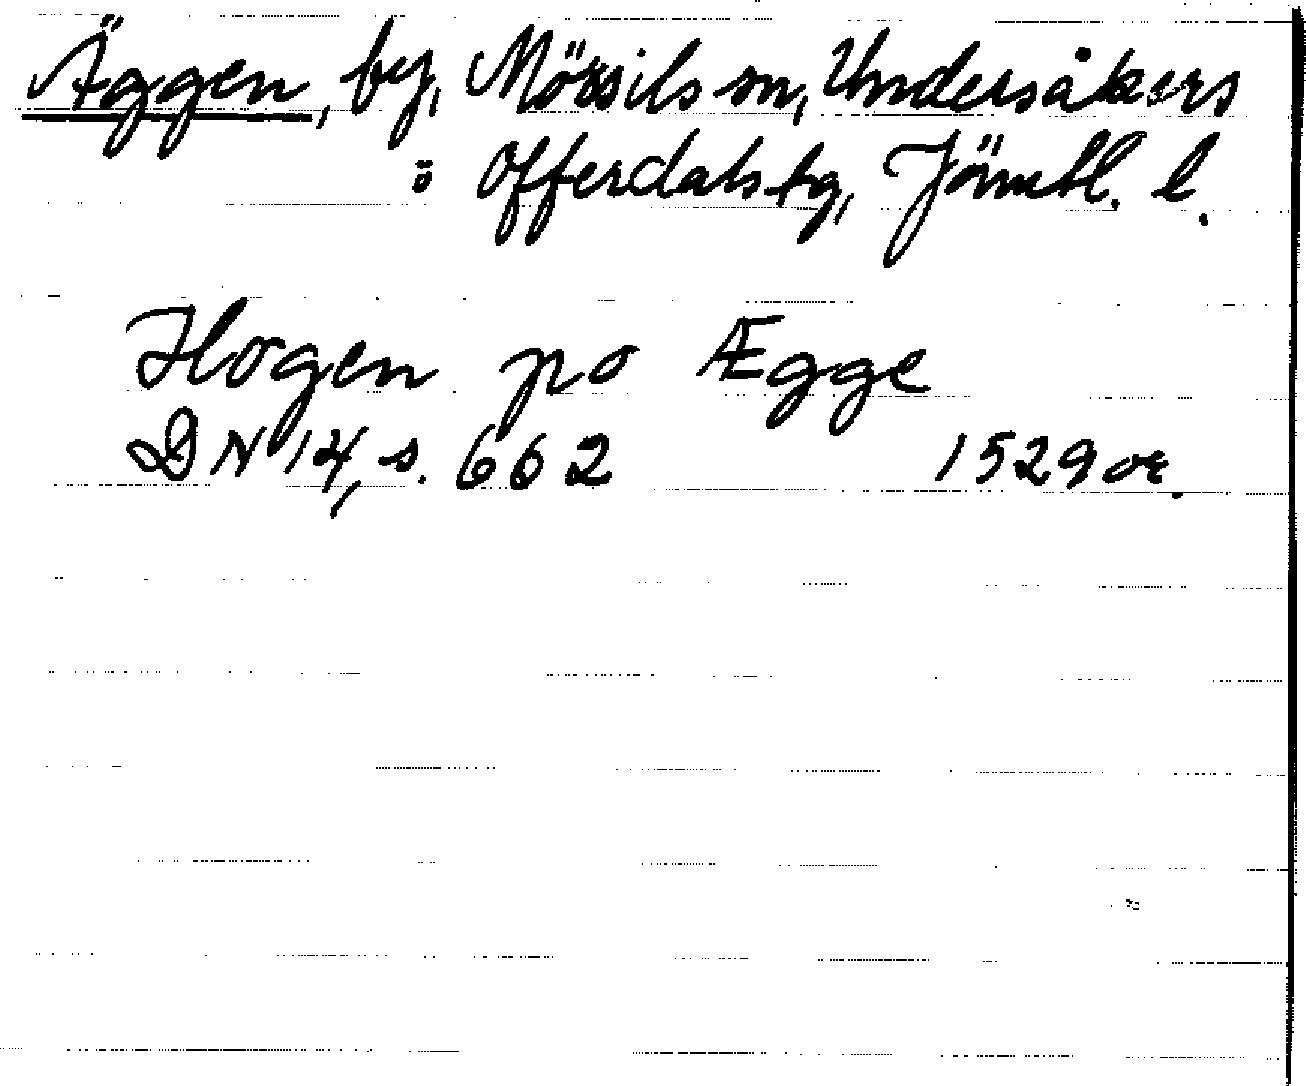 Äggen, by, Mörsils sn, Undersåkers
o Offerdals tg, Jämtl. l.
Hogen po Ægge
DN 14, s. 662 1529 or.